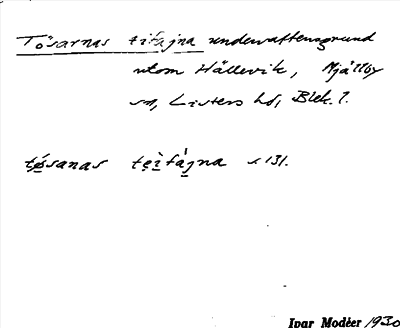 Tösarnas tifàjna undervattensgrund
utom Hällevik, Mjällby
sn, Listers hd, Blek. l.
tǿ̣sanas tẹifàjna s. 131.
Ivar Modéer 1930